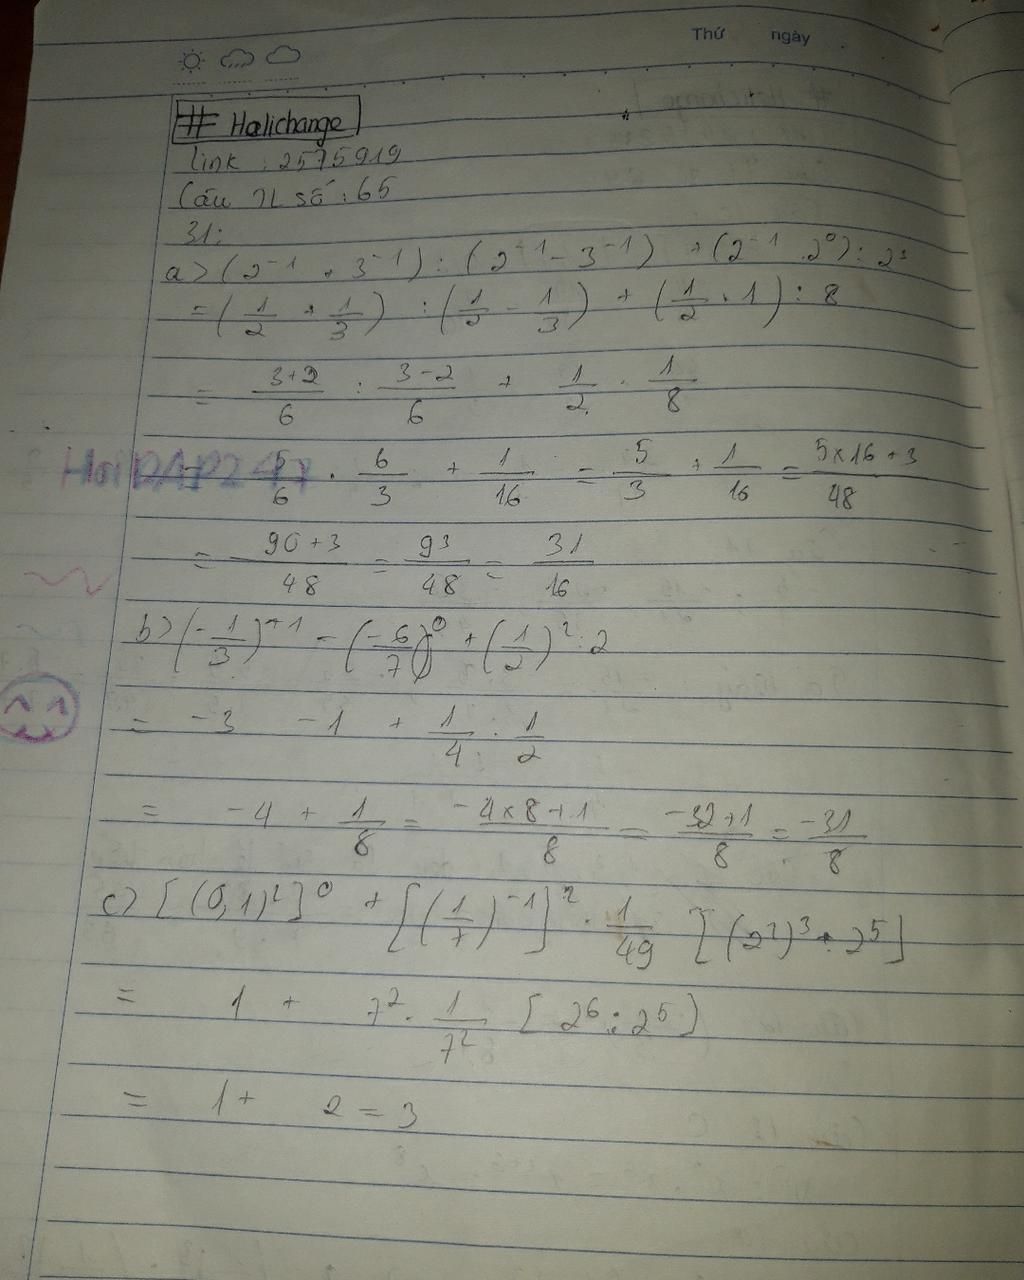 Thứ ngày
# Halichange
link : 2575919
Câu TL số : 65
31:
a> (2⁻¹ + 3⁻¹) : (2⁻¹ - 3⁻¹) + (2⁻¹ . 2⁰) : 2³
= (1/2 + 1/3) : (1/2 - 1/3) + (1/2 . 1) : 8
= 3+2/6 : 3-2/6 + 1/2 . 1/8
= 5/6 . 6/3 + 1/16 = 5/3 + 1/16 = 5x16+3/48
HoiDAP247
= 90+3/48 = 93/48 = 31/16
b> (-1/3)⁺¹ - (-6/7)⁰ + (1/2)² : 2
= -3 -1 + 1/4 . 1/2
= -4 + 1/8 = -4x8+1/8 = -32+1/8 = -31/8
c> [(0,1)²]⁰ + [(1/7)⁻¹]² . 1/49 [(2²)³ : 2⁵]
= 1 + 7² . 1/7² [2⁶ : 2⁵]
= 1 + 2 = 3